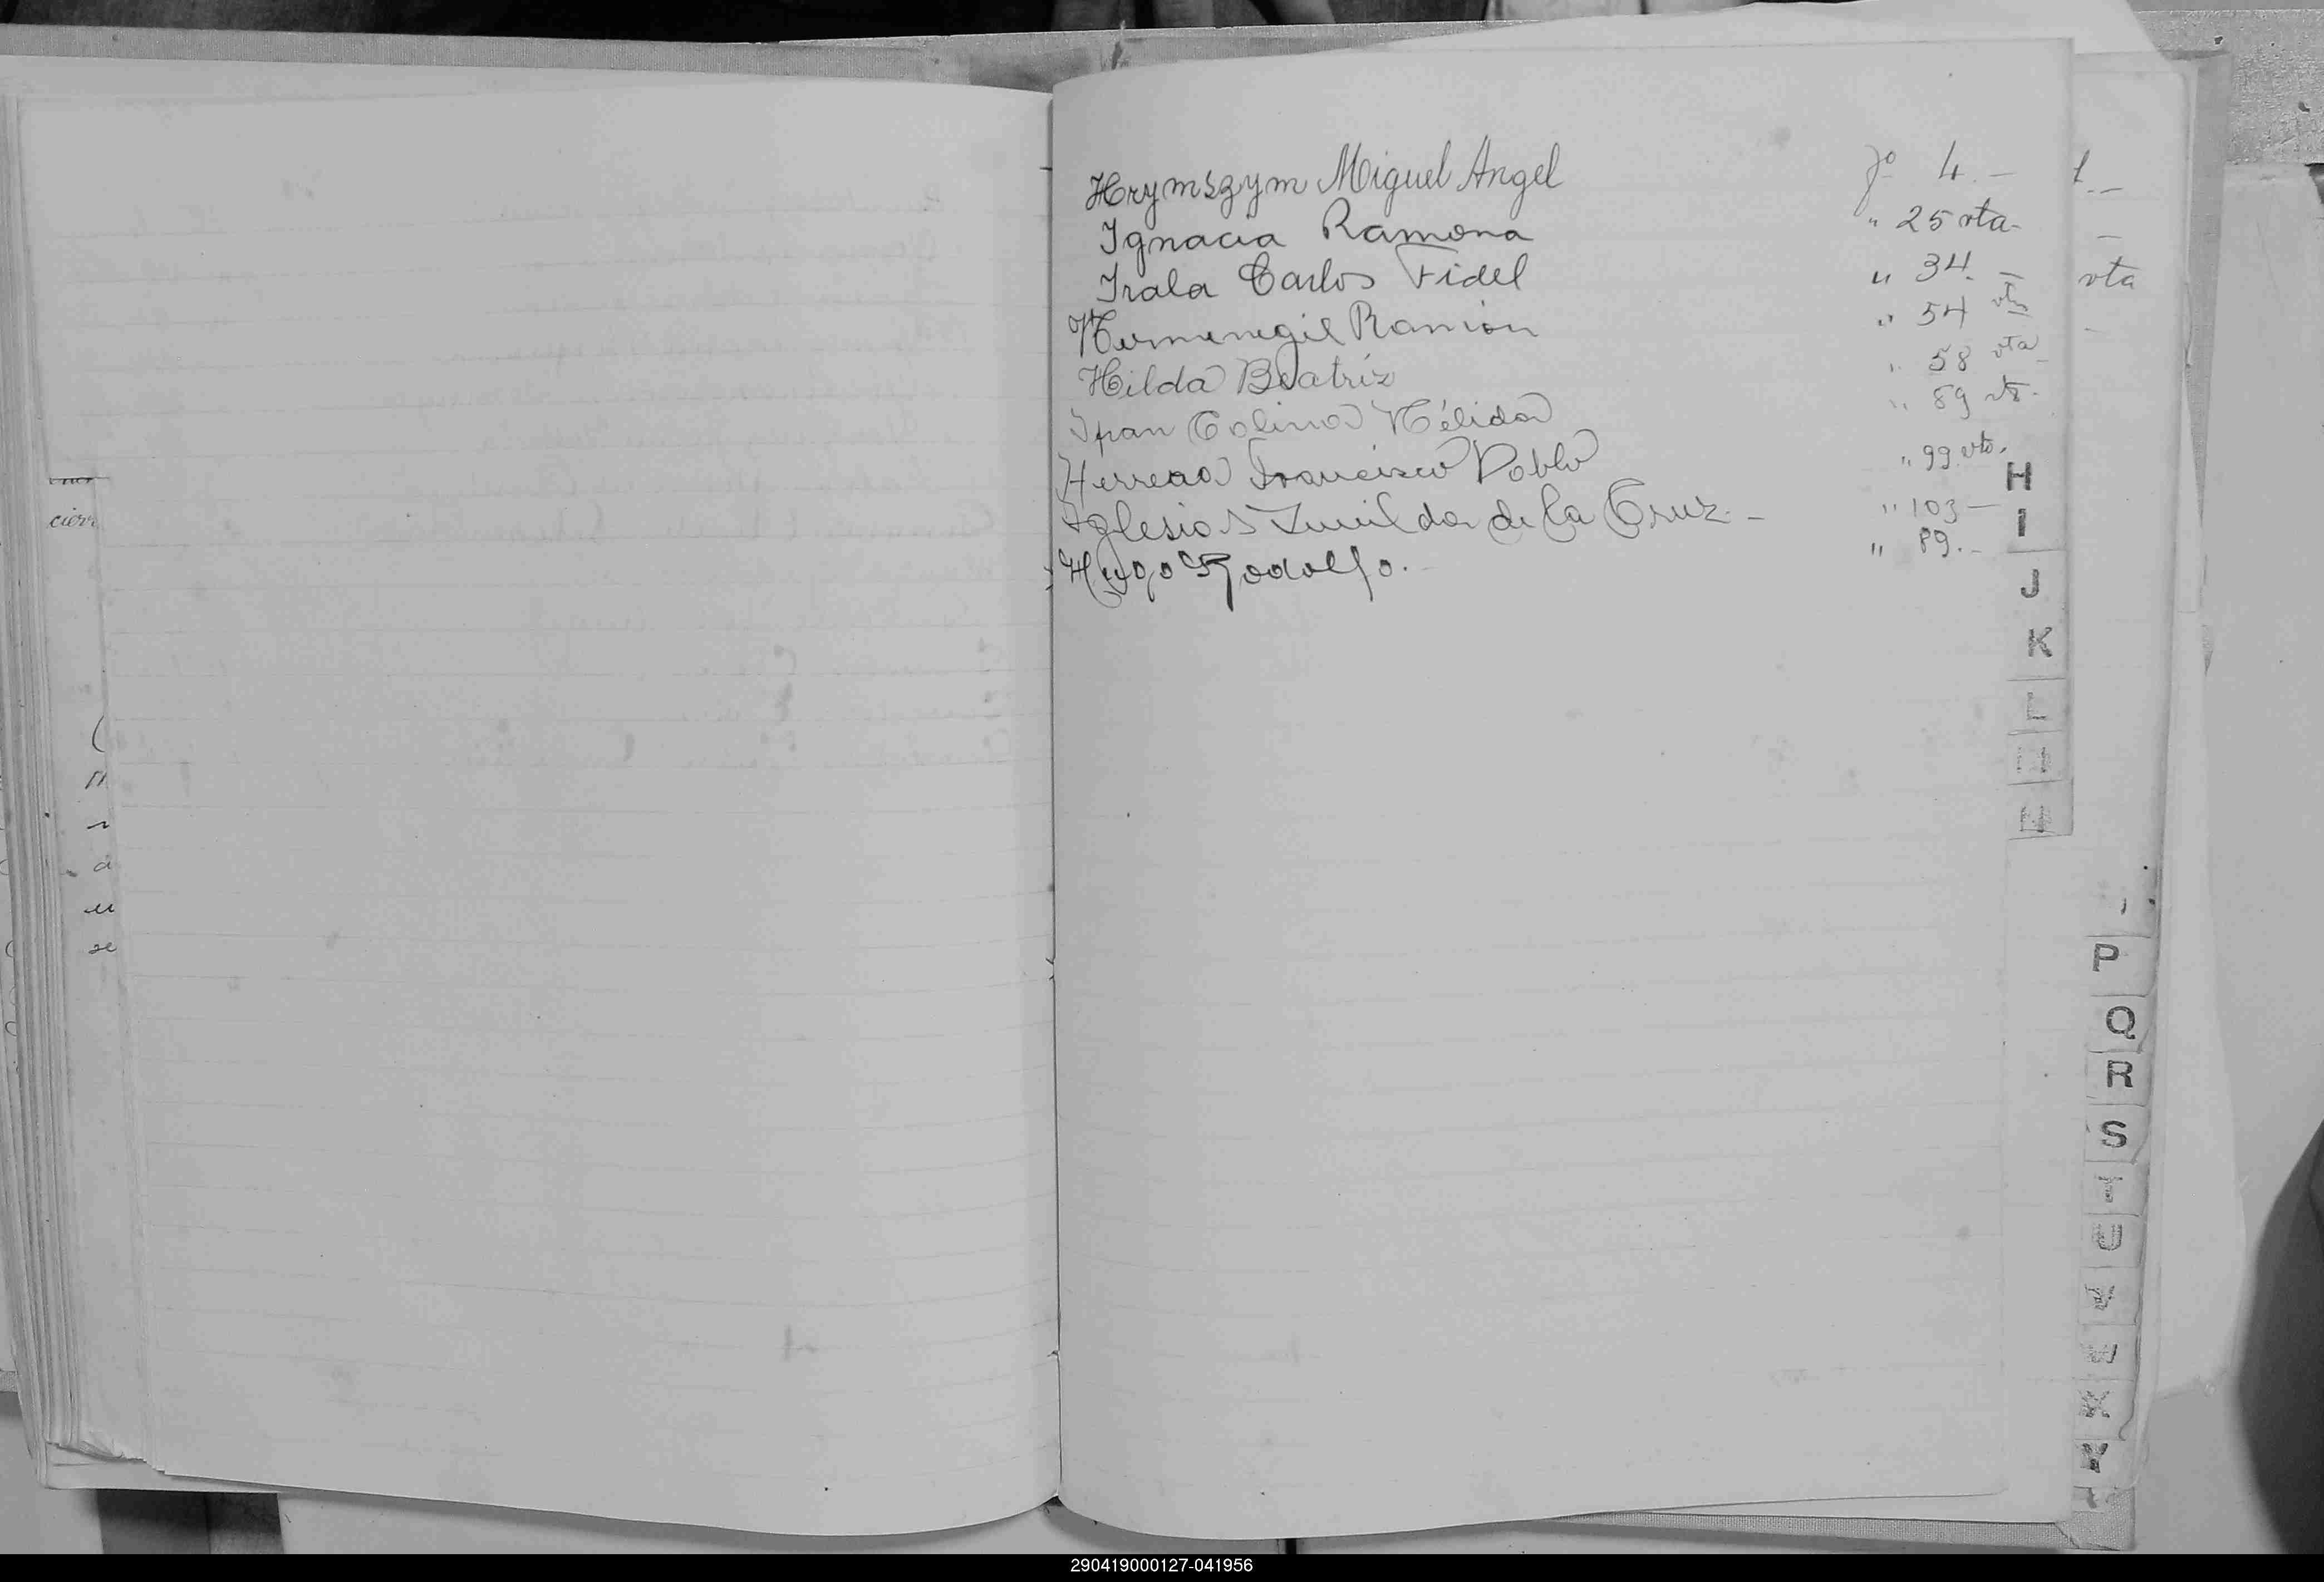 Hrymszym Miguel Angel fº 4.-
Ignacia Ramona " 25 vta-
Irala Carlos Fidel " 34.-
Hermenegil Ramón " 54 vta
Hilda Beatriz " 58 vta
Nélida " 89 vta-
Herrera Francisco Pablo " 99 vto.
Iglesias de la Cruz.- " 103 -
Hugo Rodolfo. " 89.-
vta
cier
se
H
I
J
K
L
P
Q
R
S
T
U
K
Y
290419000127-041956